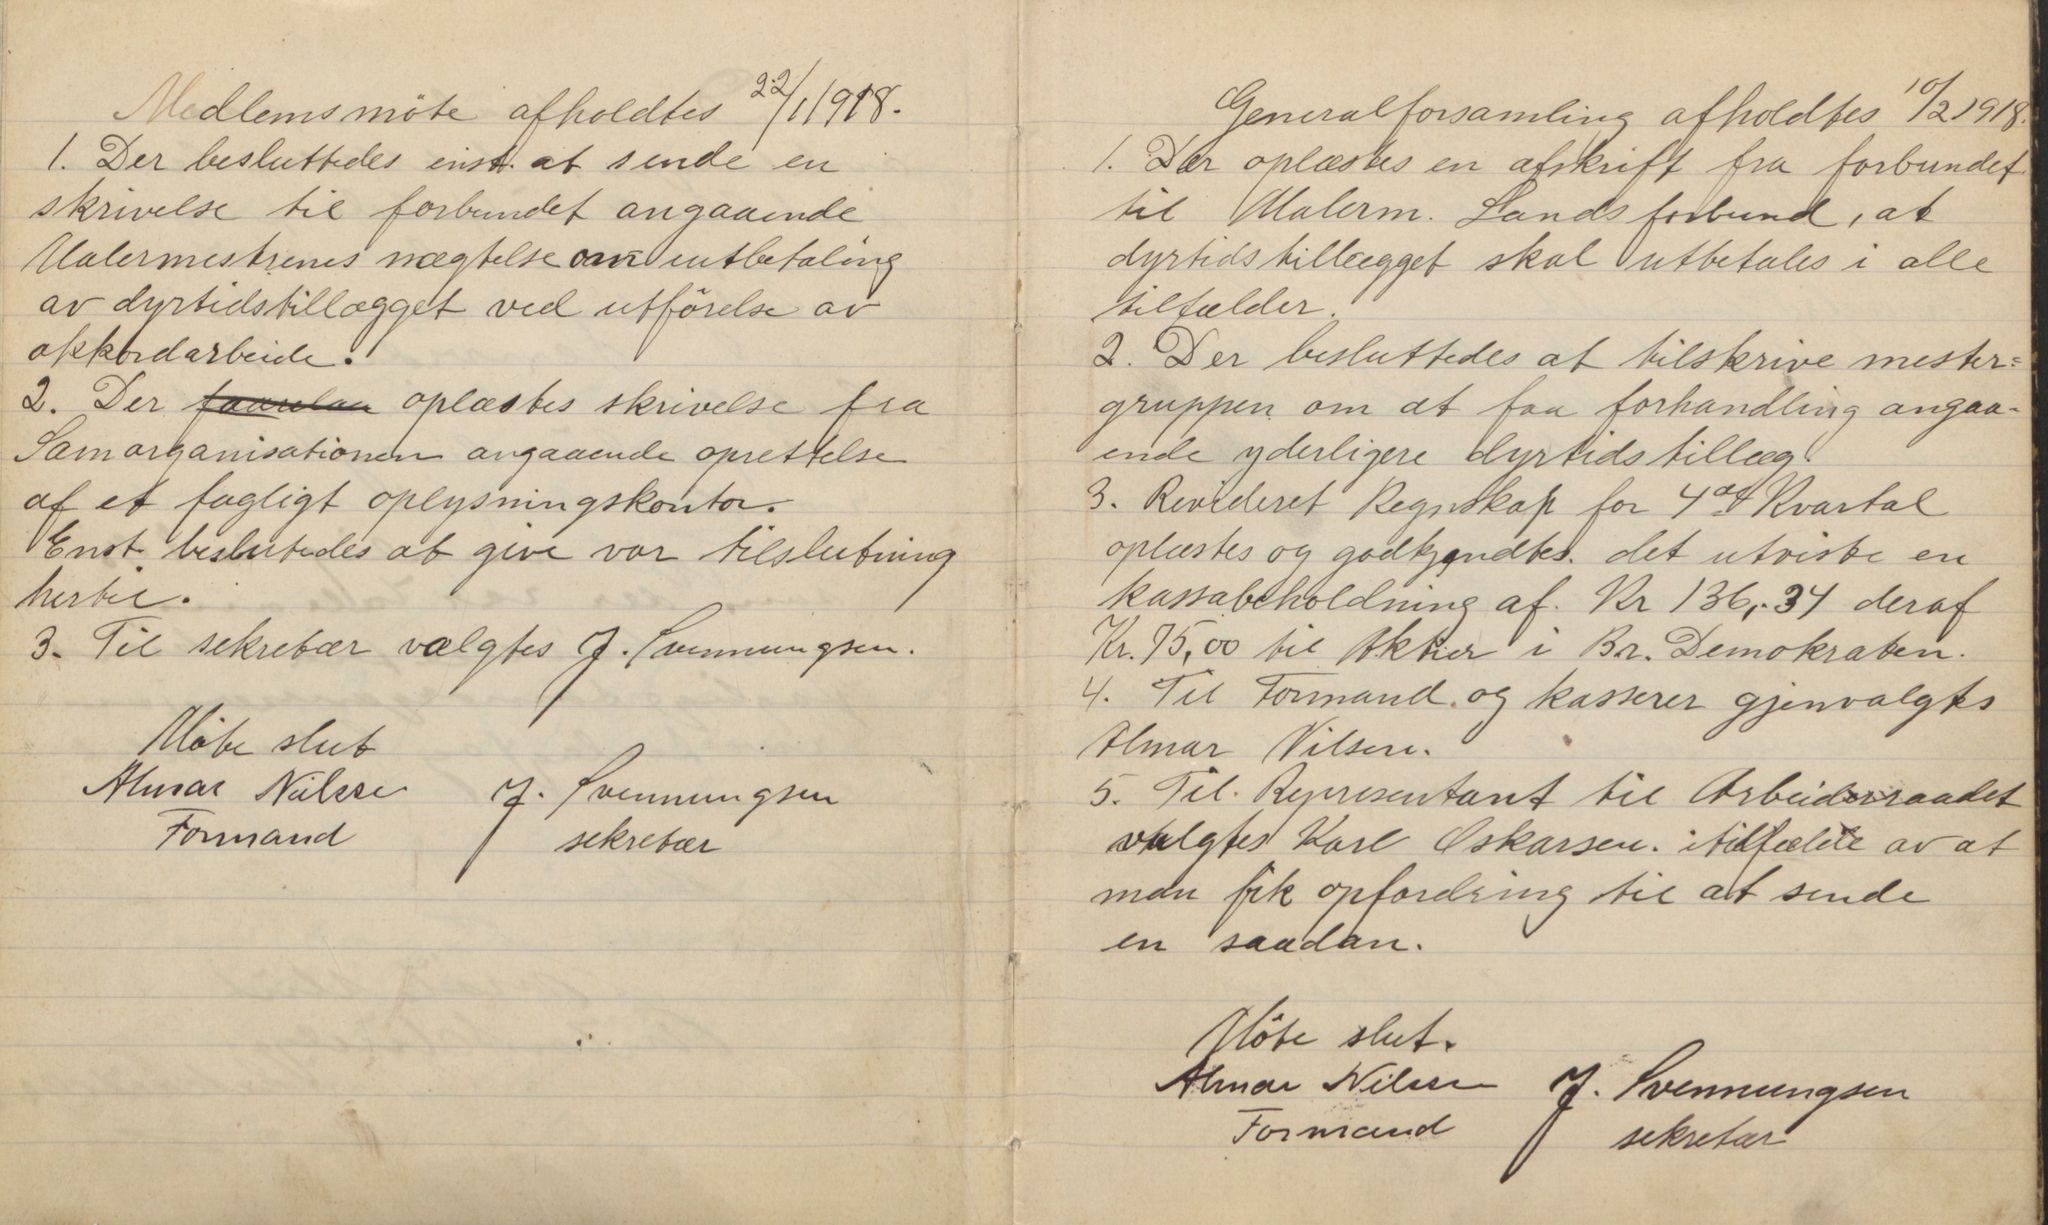 Medlemsmöte afholdtes 22/1 1918.
1. Der besluttedes enst. at sende en
skrivelse til forbundet angaaende
Malermestrenes nægtelse om utbetaling
av dyrtidstillægget ved utförelse av
akkordarbeide.
2. Der oplæstes skrivelse fra
Samorganisationen angaaende oprettelse
af et fagligt oplysningskontor.
Enst. beslutedes at give vor tilslutning
hertil.
3. Til sekretær valgtes J. Svennungsen.
Möte slut
Almar Nilsen J. Svennungsen
Formand sekretær
Generalforsamling afholdtes 10/2 1918.
1. Der oplæstes en afskrift fra forbundet
til Malerm. Landsforbund, at
dyrtidstillægget skal utbetales i alle
tilfælder.
2. Der besluttedes at tilskrive mester=
gruppen om at faa forhandling angaa-
ende yderligere dyrtidstillæg.
3. Revideret Regnskap for 4de Kvartal
oplæstes og godkjendtes. det utviste en
kassabeholdning af. Kr 136,.34 deraf
Kr. 75,00 til Aktier i Br. Demokraten.
4. Til Formand og kasserer gjenvalgtes
Almar Nilsen.
5. Til Representant til Arbeiderraadet
valgtes Karl Oskarsen. i tilfælde av at
man fik opfordring til at sende
en saadan.
Möte slut.
Almar Nilsen J. Svennungsen
Formand sekretær